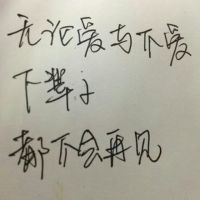 无论爱与不爱
下辈子
都不会再见